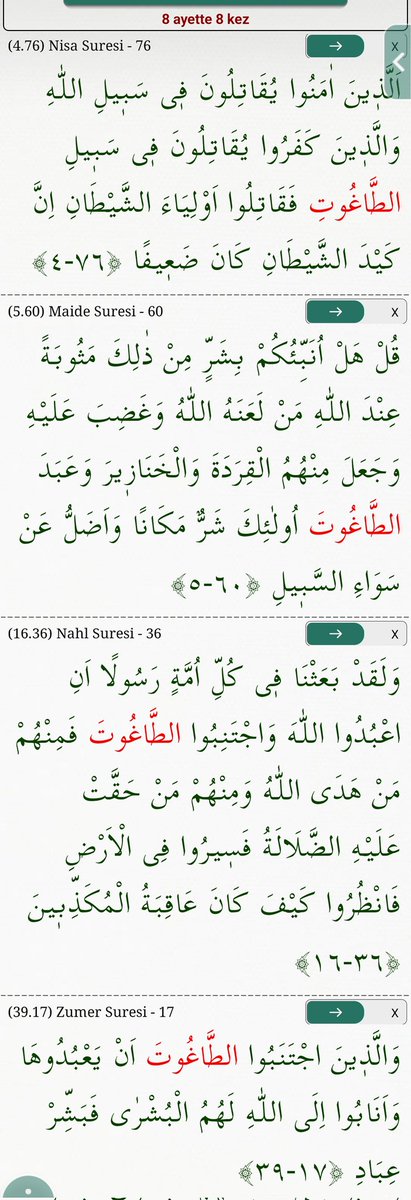 8 ayette 8 kez
(4.76) Nisa Suresi - 76 → x
اَلَّذ۪ينَ اٰمَنُوا يُقَاتِلُونَ ف۪ي سَب۪يلِ اللّٰهِ
وَالَّذ۪ينَ كَفَرُوا يُقَاتِلُونَ ف۪ي سَب۪يلِ
الطَّاغُوتِ فَقَاتِلُوا اَوْلِيَاءَ الشَّيْطَانِ اِنَّ
كَيْدَ الشَّيْطَانِ كَانَ ضَع۪يفًا ﴿٧٦-٤﴾
(5.60) Maide Suresi - 60 → x
قُلْ هَلْ اُنَبِّئُكُمْ بِشَرٍّ مِنْ ذٰلِكَ مَثُوبَةً
عِنْدَ اللّٰهِ مَنْ لَعَنَهُ اللّٰهُ وَغَضِبَ عَلَيْهِ
وَجَعَلَ مِنْهُمُ الْقِرَدَةَ وَالْخَنَاز۪يرَ وَعَبَدَ
الطَّاغُوتَ اُولٰئِكَ شَرٌّ مَكَانًا وَاَضَلُّ عَنْ
سَوَاءِ السَّب۪يلِ ﴿٦٠-٥﴾
(16.36) Nahl Suresi - 36 → x
وَلَقَدْ بَعَثْنَا ف۪ي كُلِّ اُمَّةٍ رَسُولًا اَنِ
اعْبُدُوا اللّٰهَ وَاجْتَنِبُوا الطَّاغُوتَ فَمِنْهُمْ
مَنْ هَدَى اللّٰهُ وَمِنْهُمْ مَنْ حَقَّتْ
عَلَيْهِ الضَّلَالَةُ فَس۪يرُوا فِي الْاَرْضِ
فَانْظُرُوا كَيْفَ كَانَ عَاقِبَةُ الْمُكَذِّب۪ينَ
﴿٣٦-١٦﴾
(39.17) Zumer Suresi - 17 → x
وَالَّذ۪ينَ اجْتَنَبُوا الطَّاغُوتَ اَنْ يَعْبُدُوهَا
وَاَنَابُوا اِلَى اللّٰهِ لَهُمُ الْبُشْرٰى فَبَشِّرْ
عِبَادِ ﴿١٧-٣٩﴾